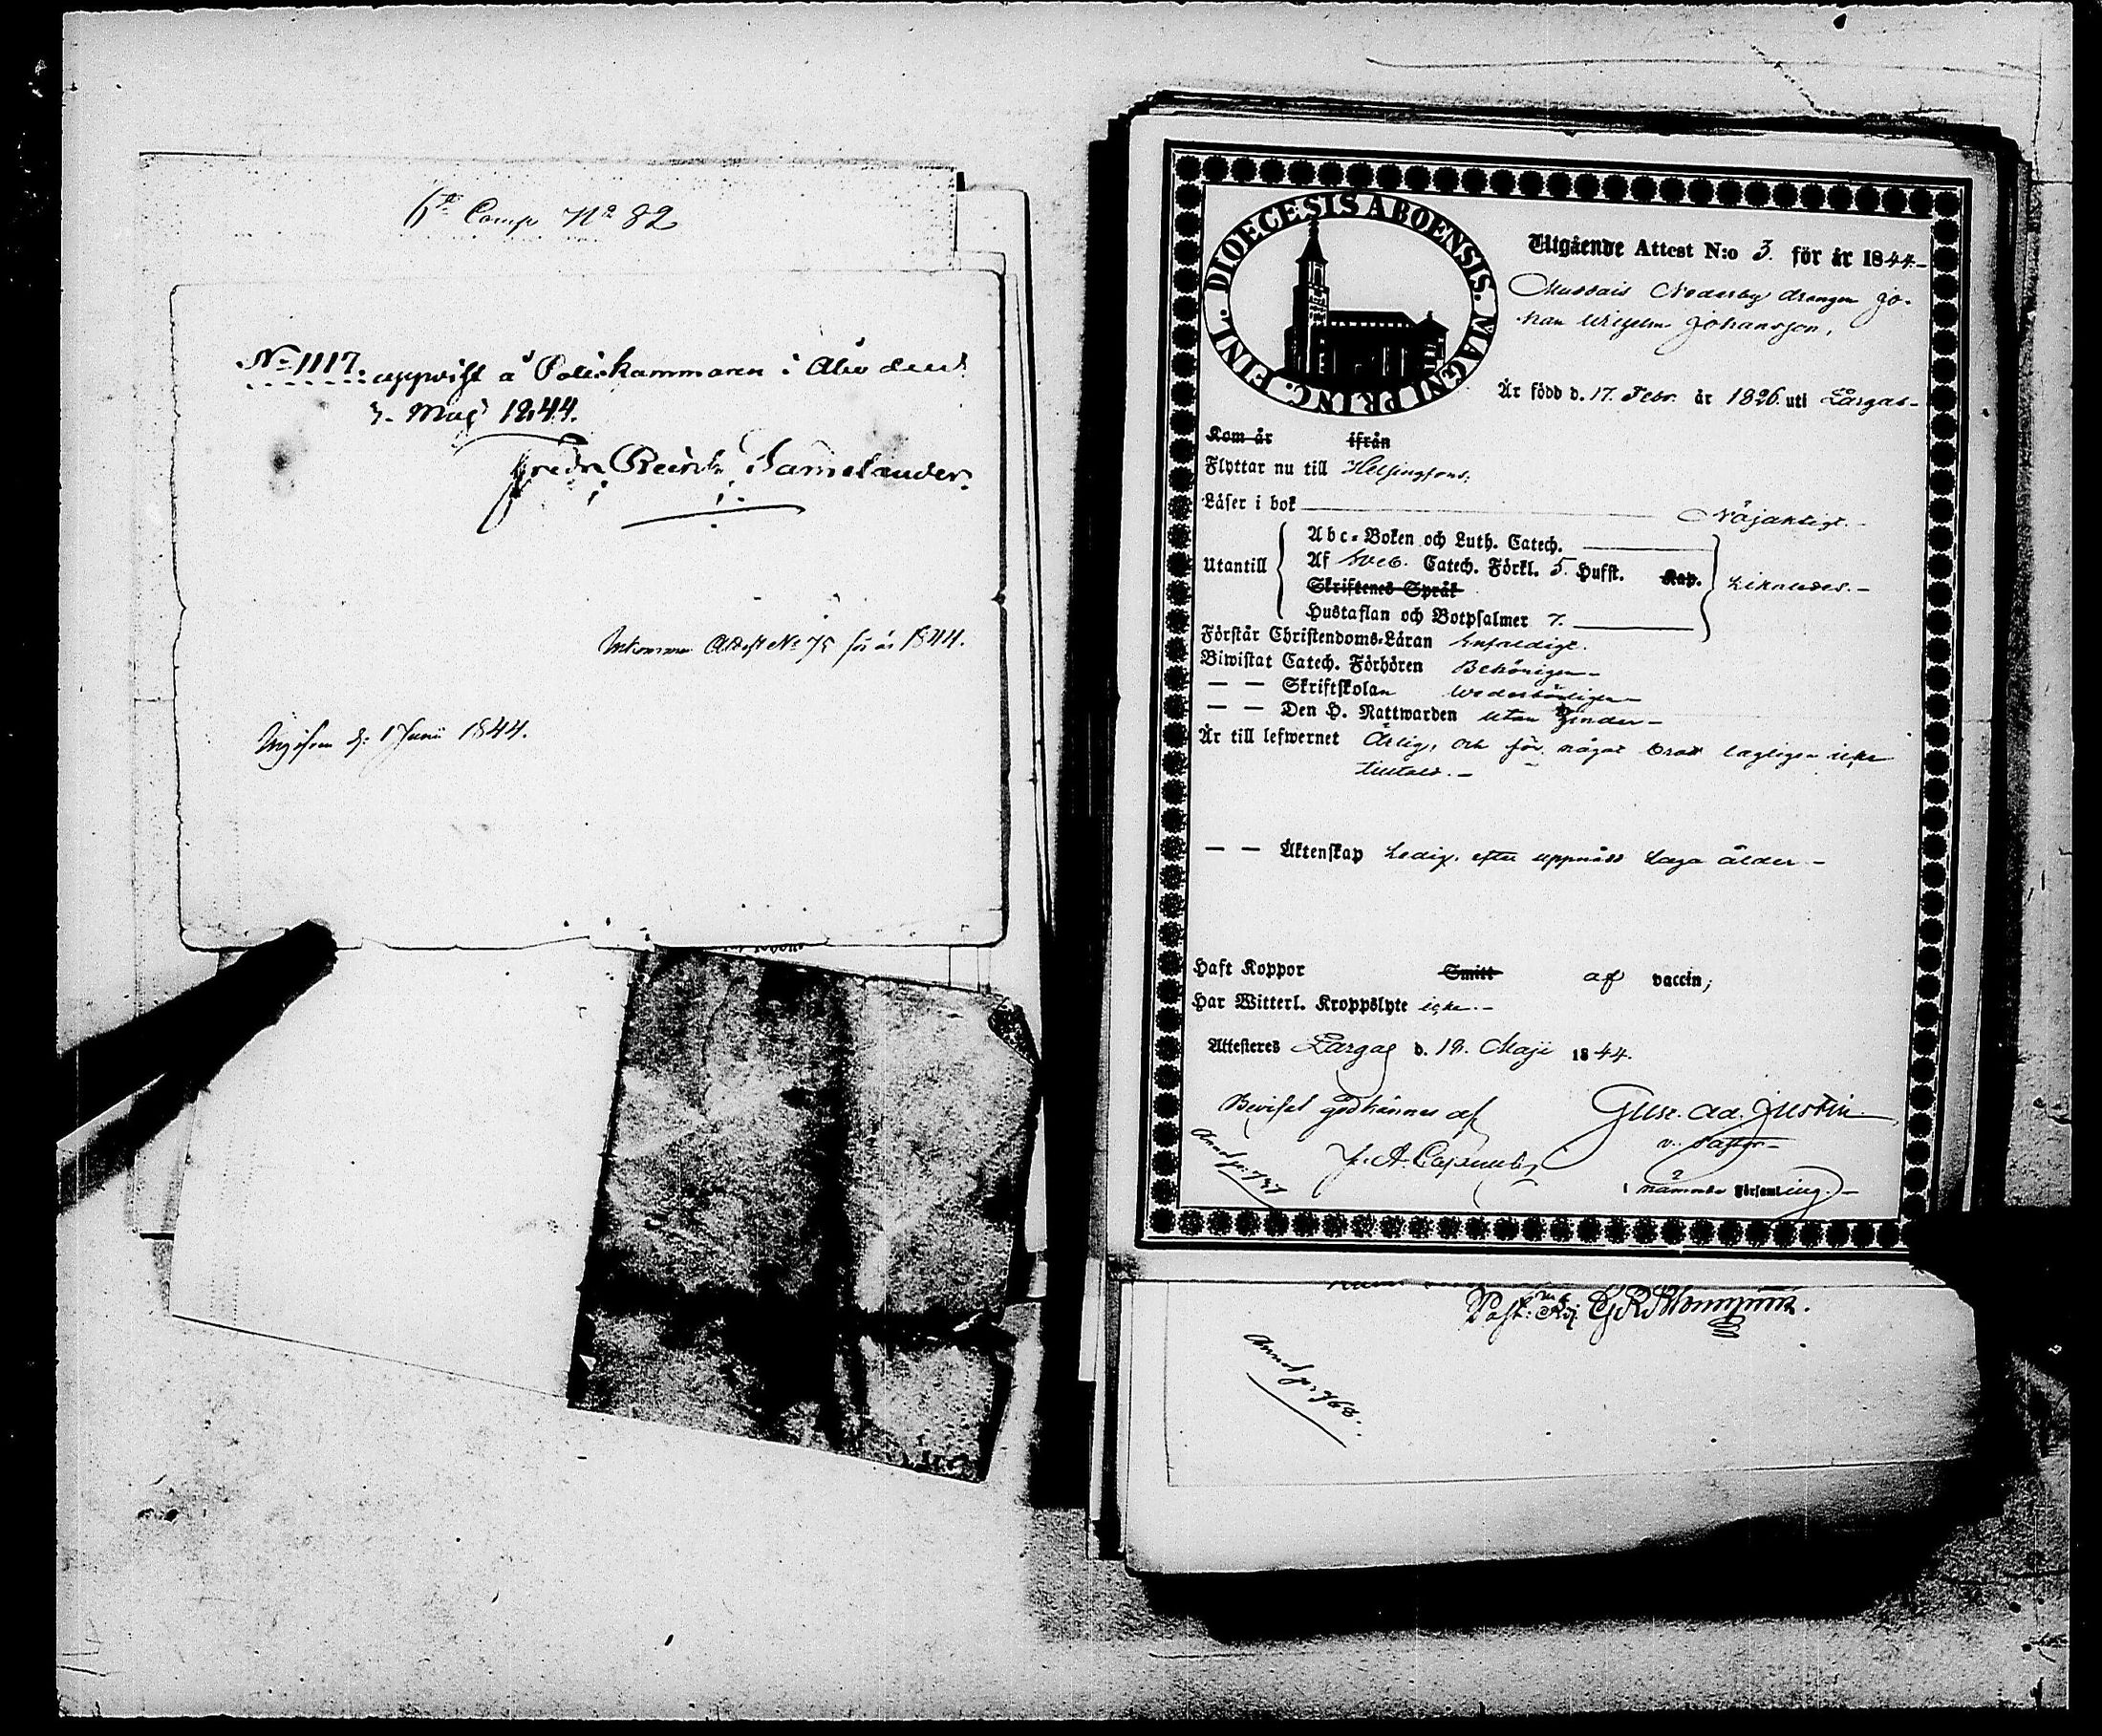 6te Comp No 82
No 1117. uppvist å Poliskammaren i Åbo den
3. Maj 1844.
Inkommen Attest No 75 för år 1844.
1 Junii 1844.
DIOECESIS ABOENSIS. MAGNI PRINC. FINL.
Utgående Attest N:o 3. för år 1844.-
Nederby drängen Jo-
han Wilhelm Johansson,
Är född d. 17. Febr. år 1826. uti Largas-
Kom år ifrån
Flyttar nu till Helsingfors;
Läser i bok Nöjaktigt.-
Abc-Boken och Luth. Catech.
Utantill Af Sveb. Catech. Förkl. 5. Hufst. Kap. Likaledes.-
Skriftenes Språk
Hustaflan och Botpsalmer 7.
Förstår Christendoms-Läran Enfaldigt.
Biwistat Catech. Förhören Behörigen-
— — Skriftskolan wederbörligen-
— — Den H. Nattwarden utan hinder-
Är till lefwernet Ärlig, och för något brott lagligen icke
tilltald.-
— — Äktenskap Ledig, efter uppnådd laga ålder-
Haft Koppor Smitt af vaccin;
Har Witterl. Kroppslyte icke.-
Attesteres Largas d. 18. Maji 1844.
Beviset godkännes af Gust. Ad. Justin
v. Pastor-
i nämnde Församling.-
Annot. p. 768.